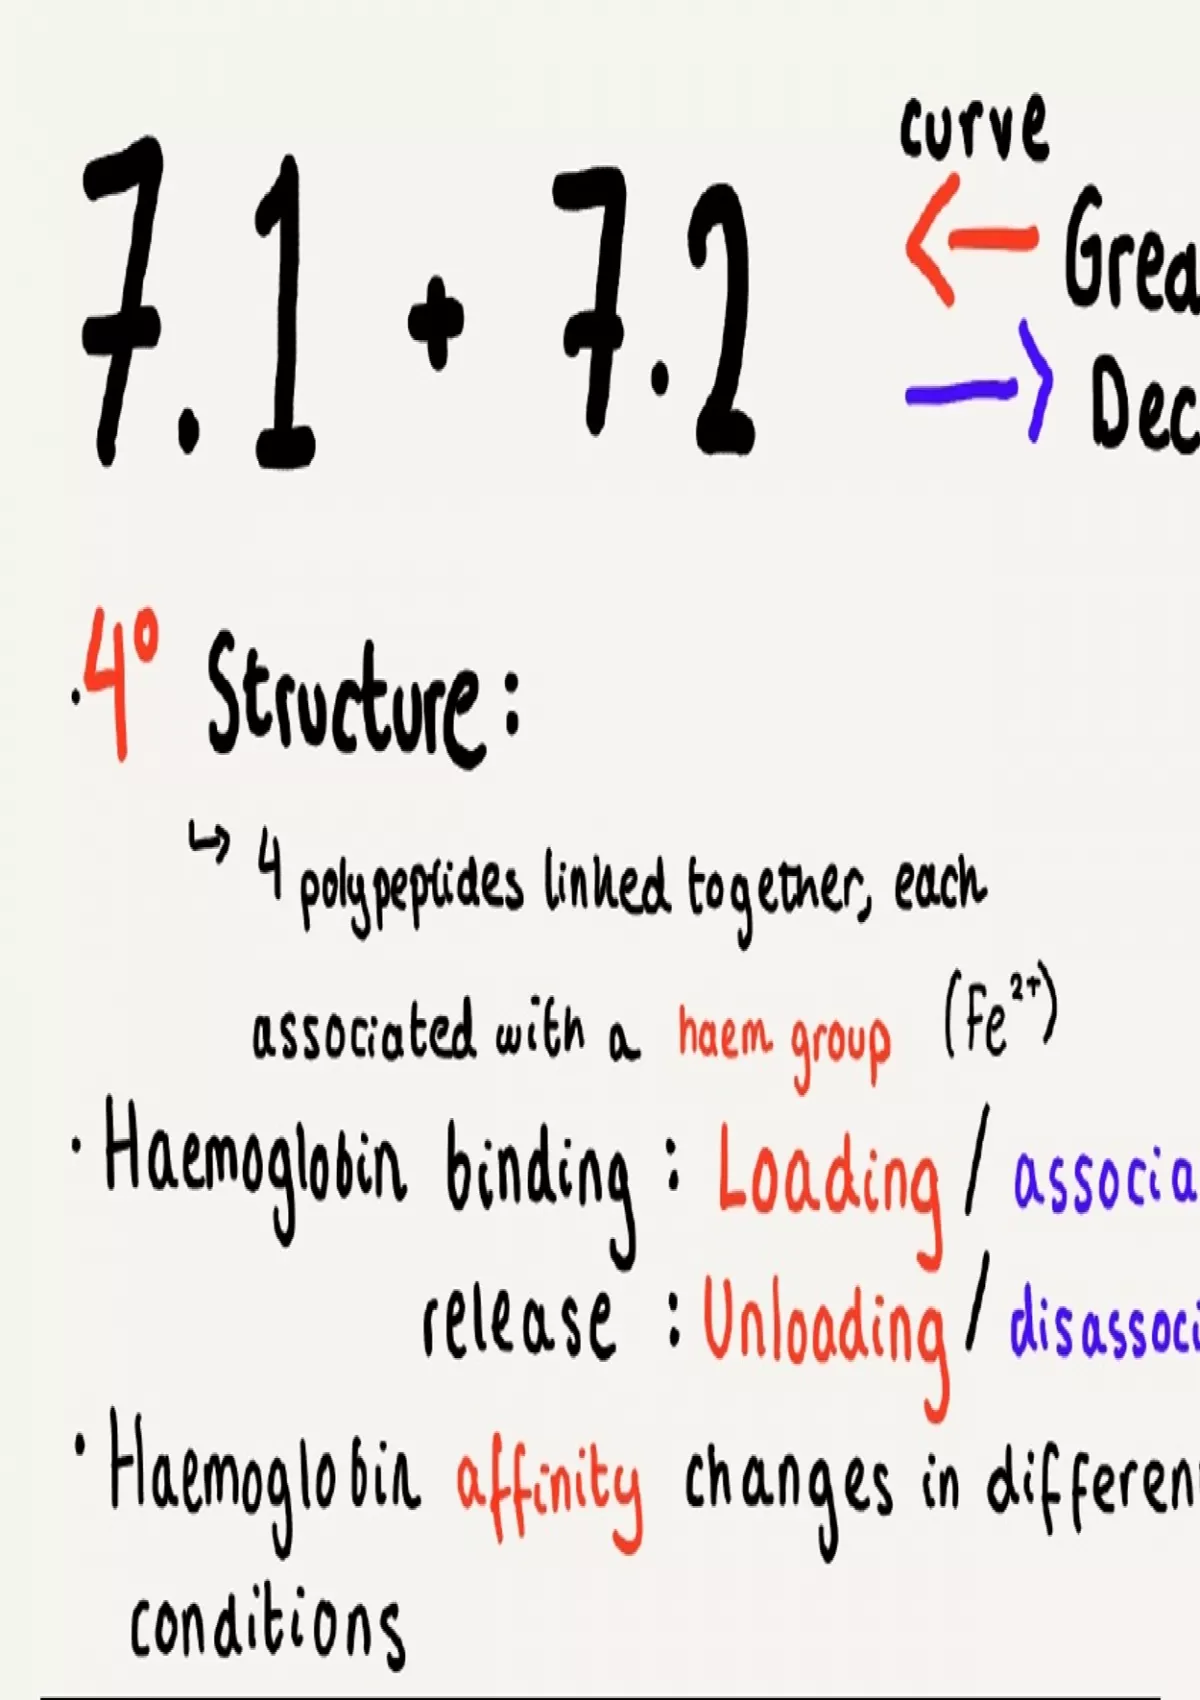 7.1 + 7.2
curve
← Grea
→ Dec
· 4° Structure:
↳ 4 polypeptides linked together, each
associated with a haem group (Fe²⁺)
· Haemoglobin binding : Loading / associa
release : Unloading / disassoci
· Haemoglobin affinity changes in different
conditions